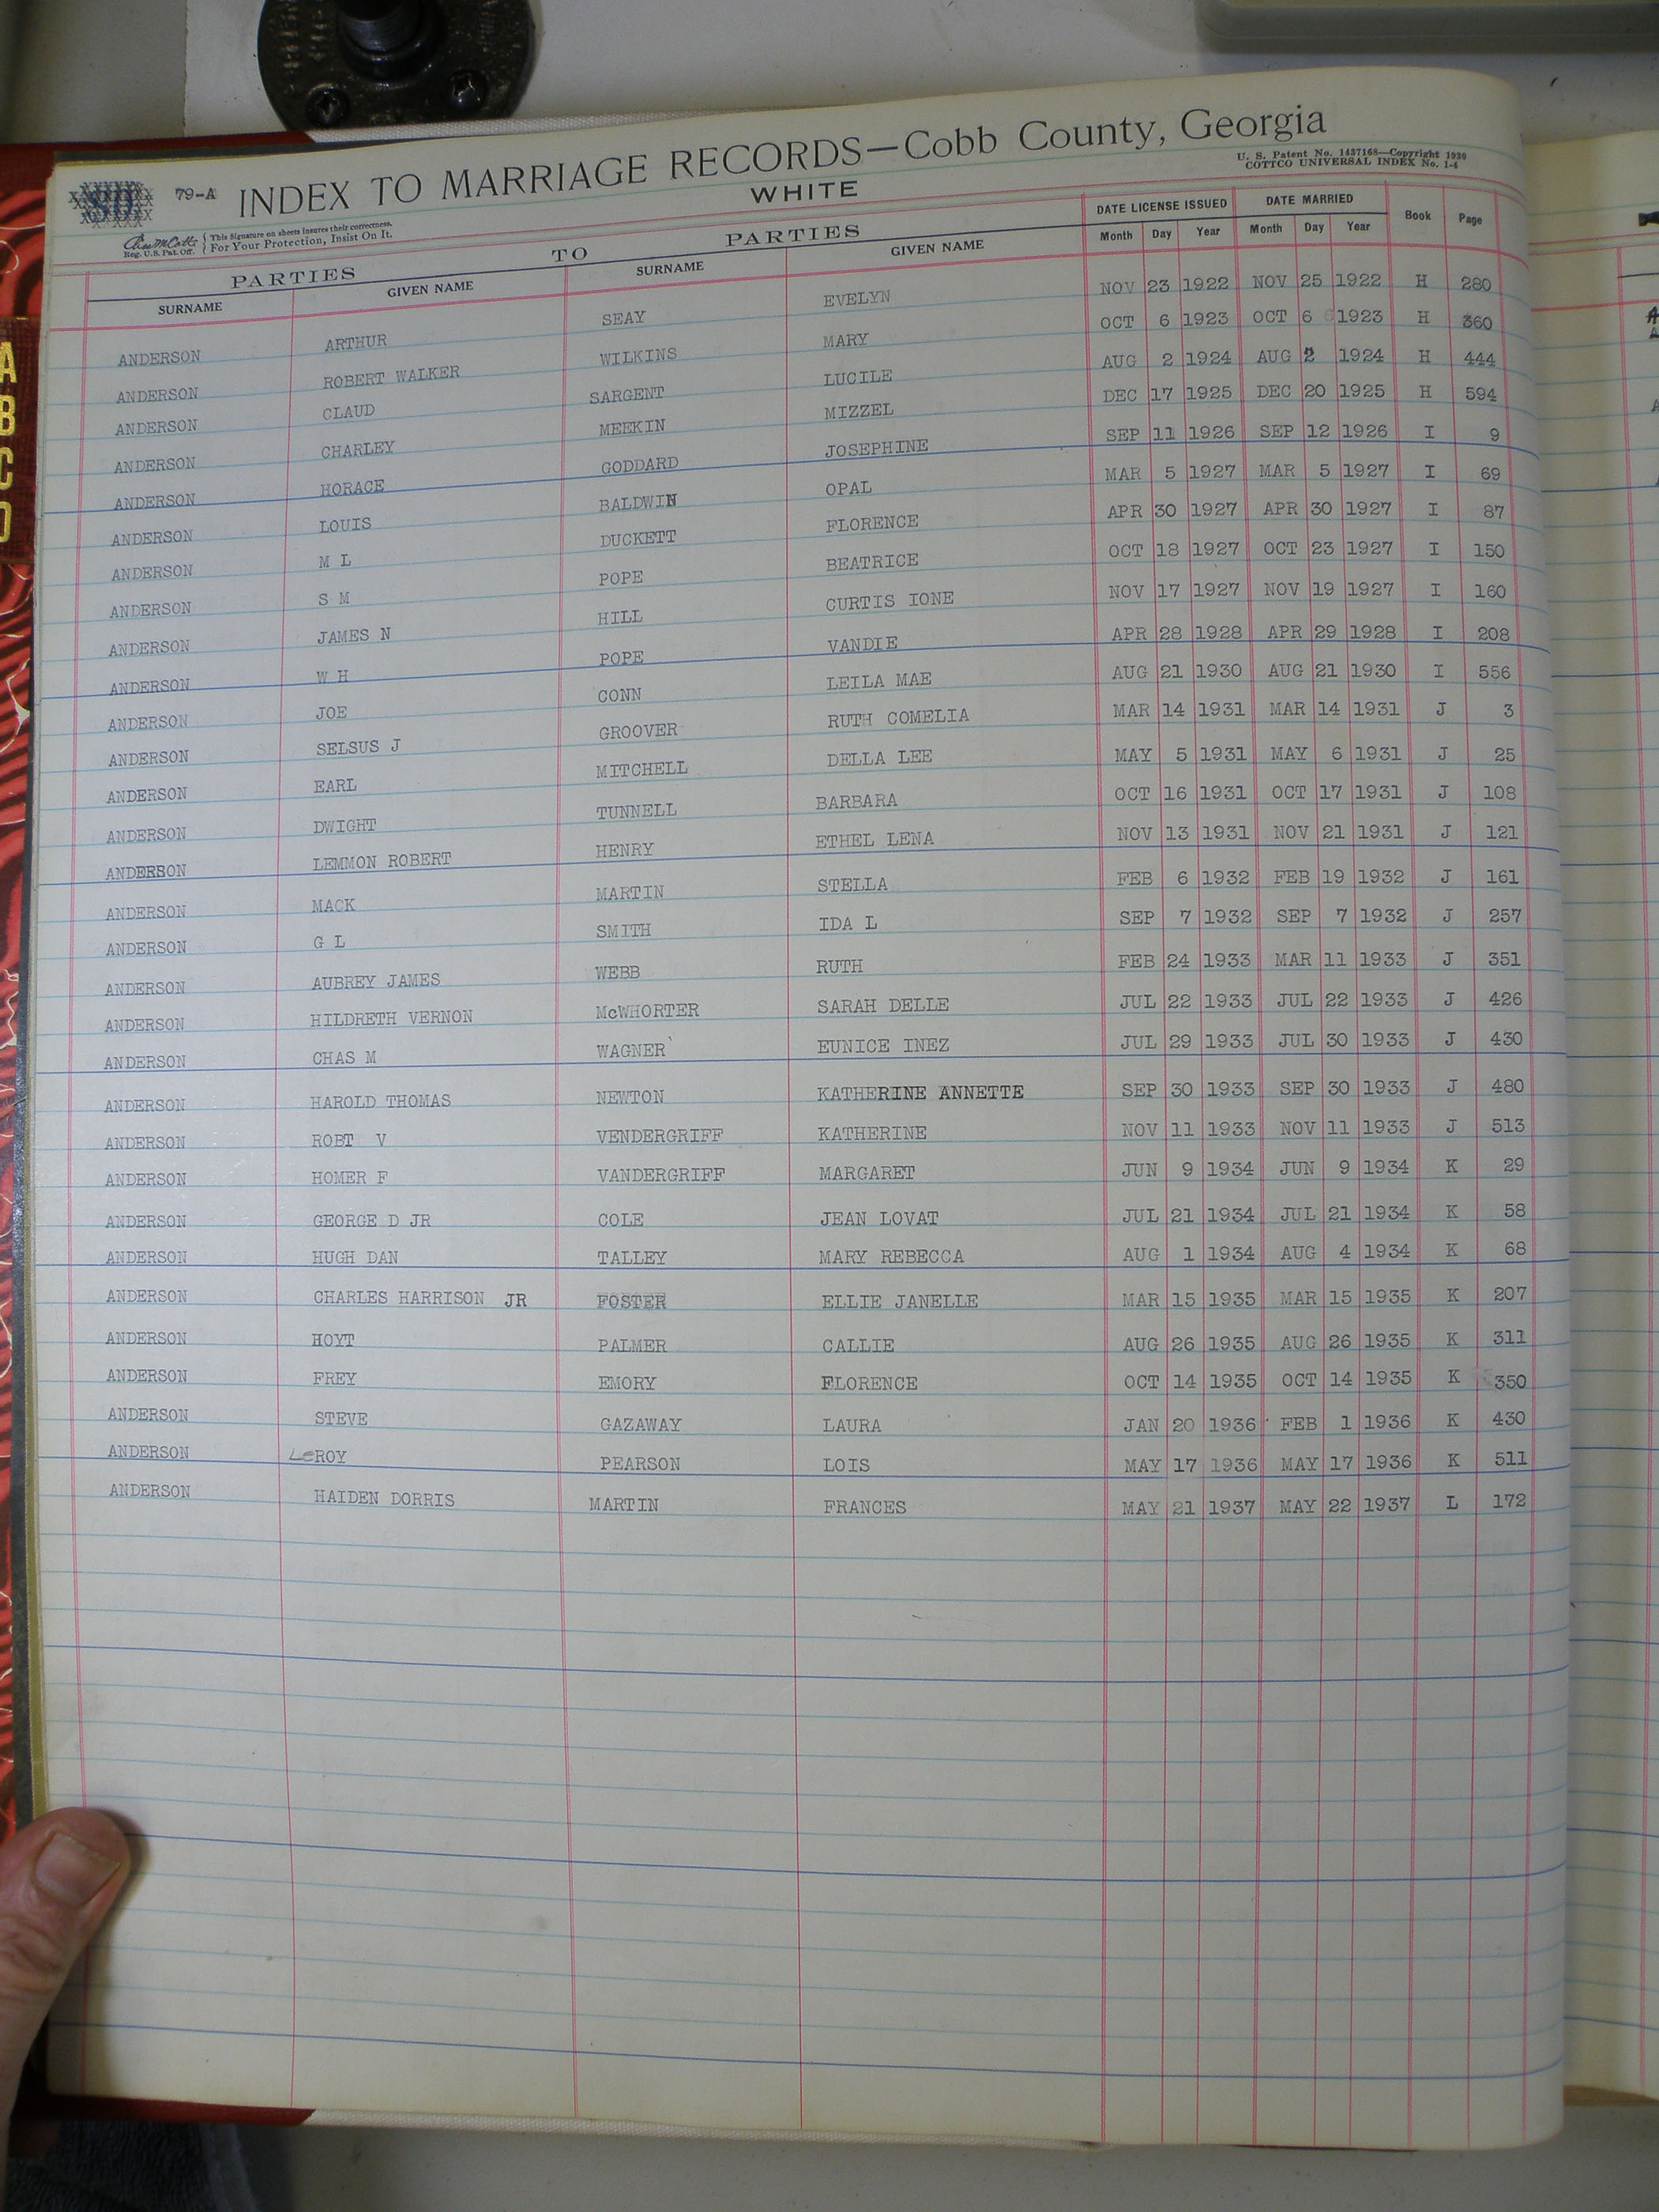 79-A INDEX TO MARRIAGE RECORDS—Cobb County, Georgia
WHITE
U. S. Patent No. 1437168—Copyright 1930
COTTCO UNIVERSAL INDEX No. 1-4
Reg. U.S. Pat. Off.
This Signature on sheets insures their correctness.
For Your Protection, Insist On It.
PARTIES TO PARTIES DATE LICENSE ISSUED DATE MARRIED Book Page
SURNAME GIVEN NAME SURNAME GIVEN NAME Month Day Year Month Day Year
ANDERSON ARTHUR SEAY EVELYN NOV 23 1922 NOV 25 1922 H 280
ANDERSON ROBERT WALKER WILKINS MARY OCT 6 1923 OCT 6 1923 H 360
ANDERSON CLAUD SARGENT LUCILE AUG 2 1924 AUG 2 1924 H 444
ANDERSON CHARLEY MEEKIN MIZZEL DEC 17 1925 DEC 20 1925 H 594
ANDERSON HORACE GODDARD JOSEPHINE SEP 11 1926 SEP 12 1926 I 9
ANDERSON LOUIS BALDWIN OPAL MAR 5 1927 MAR 5 1927 I 69
ANDERSON M L DUCKETT FLORENCE APR 30 1927 APR 30 1927 I 87
ANDERSON S M POPE BEATRICE OCT 18 1927 OCT 23 1927 I 150
ANDERSON JAMES N HILL CURTIS IONE NOV 17 1927 NOV 19 1927 I 160
ANDERSON W H POPE VANDIE APR 28 1928 APR 29 1928 I 208
ANDERSON JOE CONN LEILA MAE AUG 21 1930 AUG 21 1930 I 556
ANDERSON SELSUS J GROOVER RUTH COMELIA MAR 14 1931 MAR 14 1931 J 3
ANDERSON EARL MITCHELL DELLA LEE MAY 5 1931 MAY 6 1931 J 25
ANDERSON DWIGHT TUNNELL BARBARA OCT 16 1931 OCT 17 1931 J 108
ANDERSON LEMMON ROBERT HENRY ETHEL LENA NOV 13 1931 NOV 21 1931 J 121
ANDERSON MACK MARTIN STELLA FEB 6 1932 FEB 19 1932 J 161
ANDERSON G L SMITH IDA L SEP 7 1932 SEP 7 1932 J 257
ANDERSON AUBREY JAMES WEBB RUTH FEB 24 1933 MAR 11 1933 J 351
ANDERSON HILDRETH VERNON McWHORTER SARAH DELLE JUL 22 1933 JUL 22 1933 J 426
ANDERSON CHAS M WAGNER EUNICE INEZ JUL 29 1933 JUL 30 1933 J 430
ANDERSON HAROLD THOMAS NEWTON KATHERINE ANNETTE SEP 30 1933 SEP 30 1933 J 480
ANDERSON ROBT V VENDERGRIFF KATHERINE NOV 11 1933 NOV 11 1933 J 513
ANDERSON HOMER F VANDERGRIFF MARGARET JUN 9 1934 JUN 9 1934 K 29
ANDERSON GEORGE D JR COLE JEAN LOVAT JUL 21 1934 JUL 21 1934 K 58
ANDERSON HUGH DAN TALLEY MARY REBECCA AUG 1 1934 AUG 4 1934 K 68
ANDERSON CHARLES HARRISON JR FOSTER ELLIE JANELLE MAR 15 1935 MAR 15 1935 K 207
ANDERSON HOYT PALMER CALLIE AUG 26 1935 AUG 26 1935 K 311
ANDERSON FREY EMORY FLORENCE OCT 14 1935 OCT 14 1935 K 350
ANDERSON STEVE GAZAWAY LAURA JAN 20 1936 FEB 1 1936 K 430
ANDERSON LeROY PEARSON LOIS MAY 17 1936 MAY 17 1936 K 511
ANDERSON HAIDEN DORRIS MARTIN FRANCES MAY 21 1937 MAY 22 1937 L 172
A
B
C
D